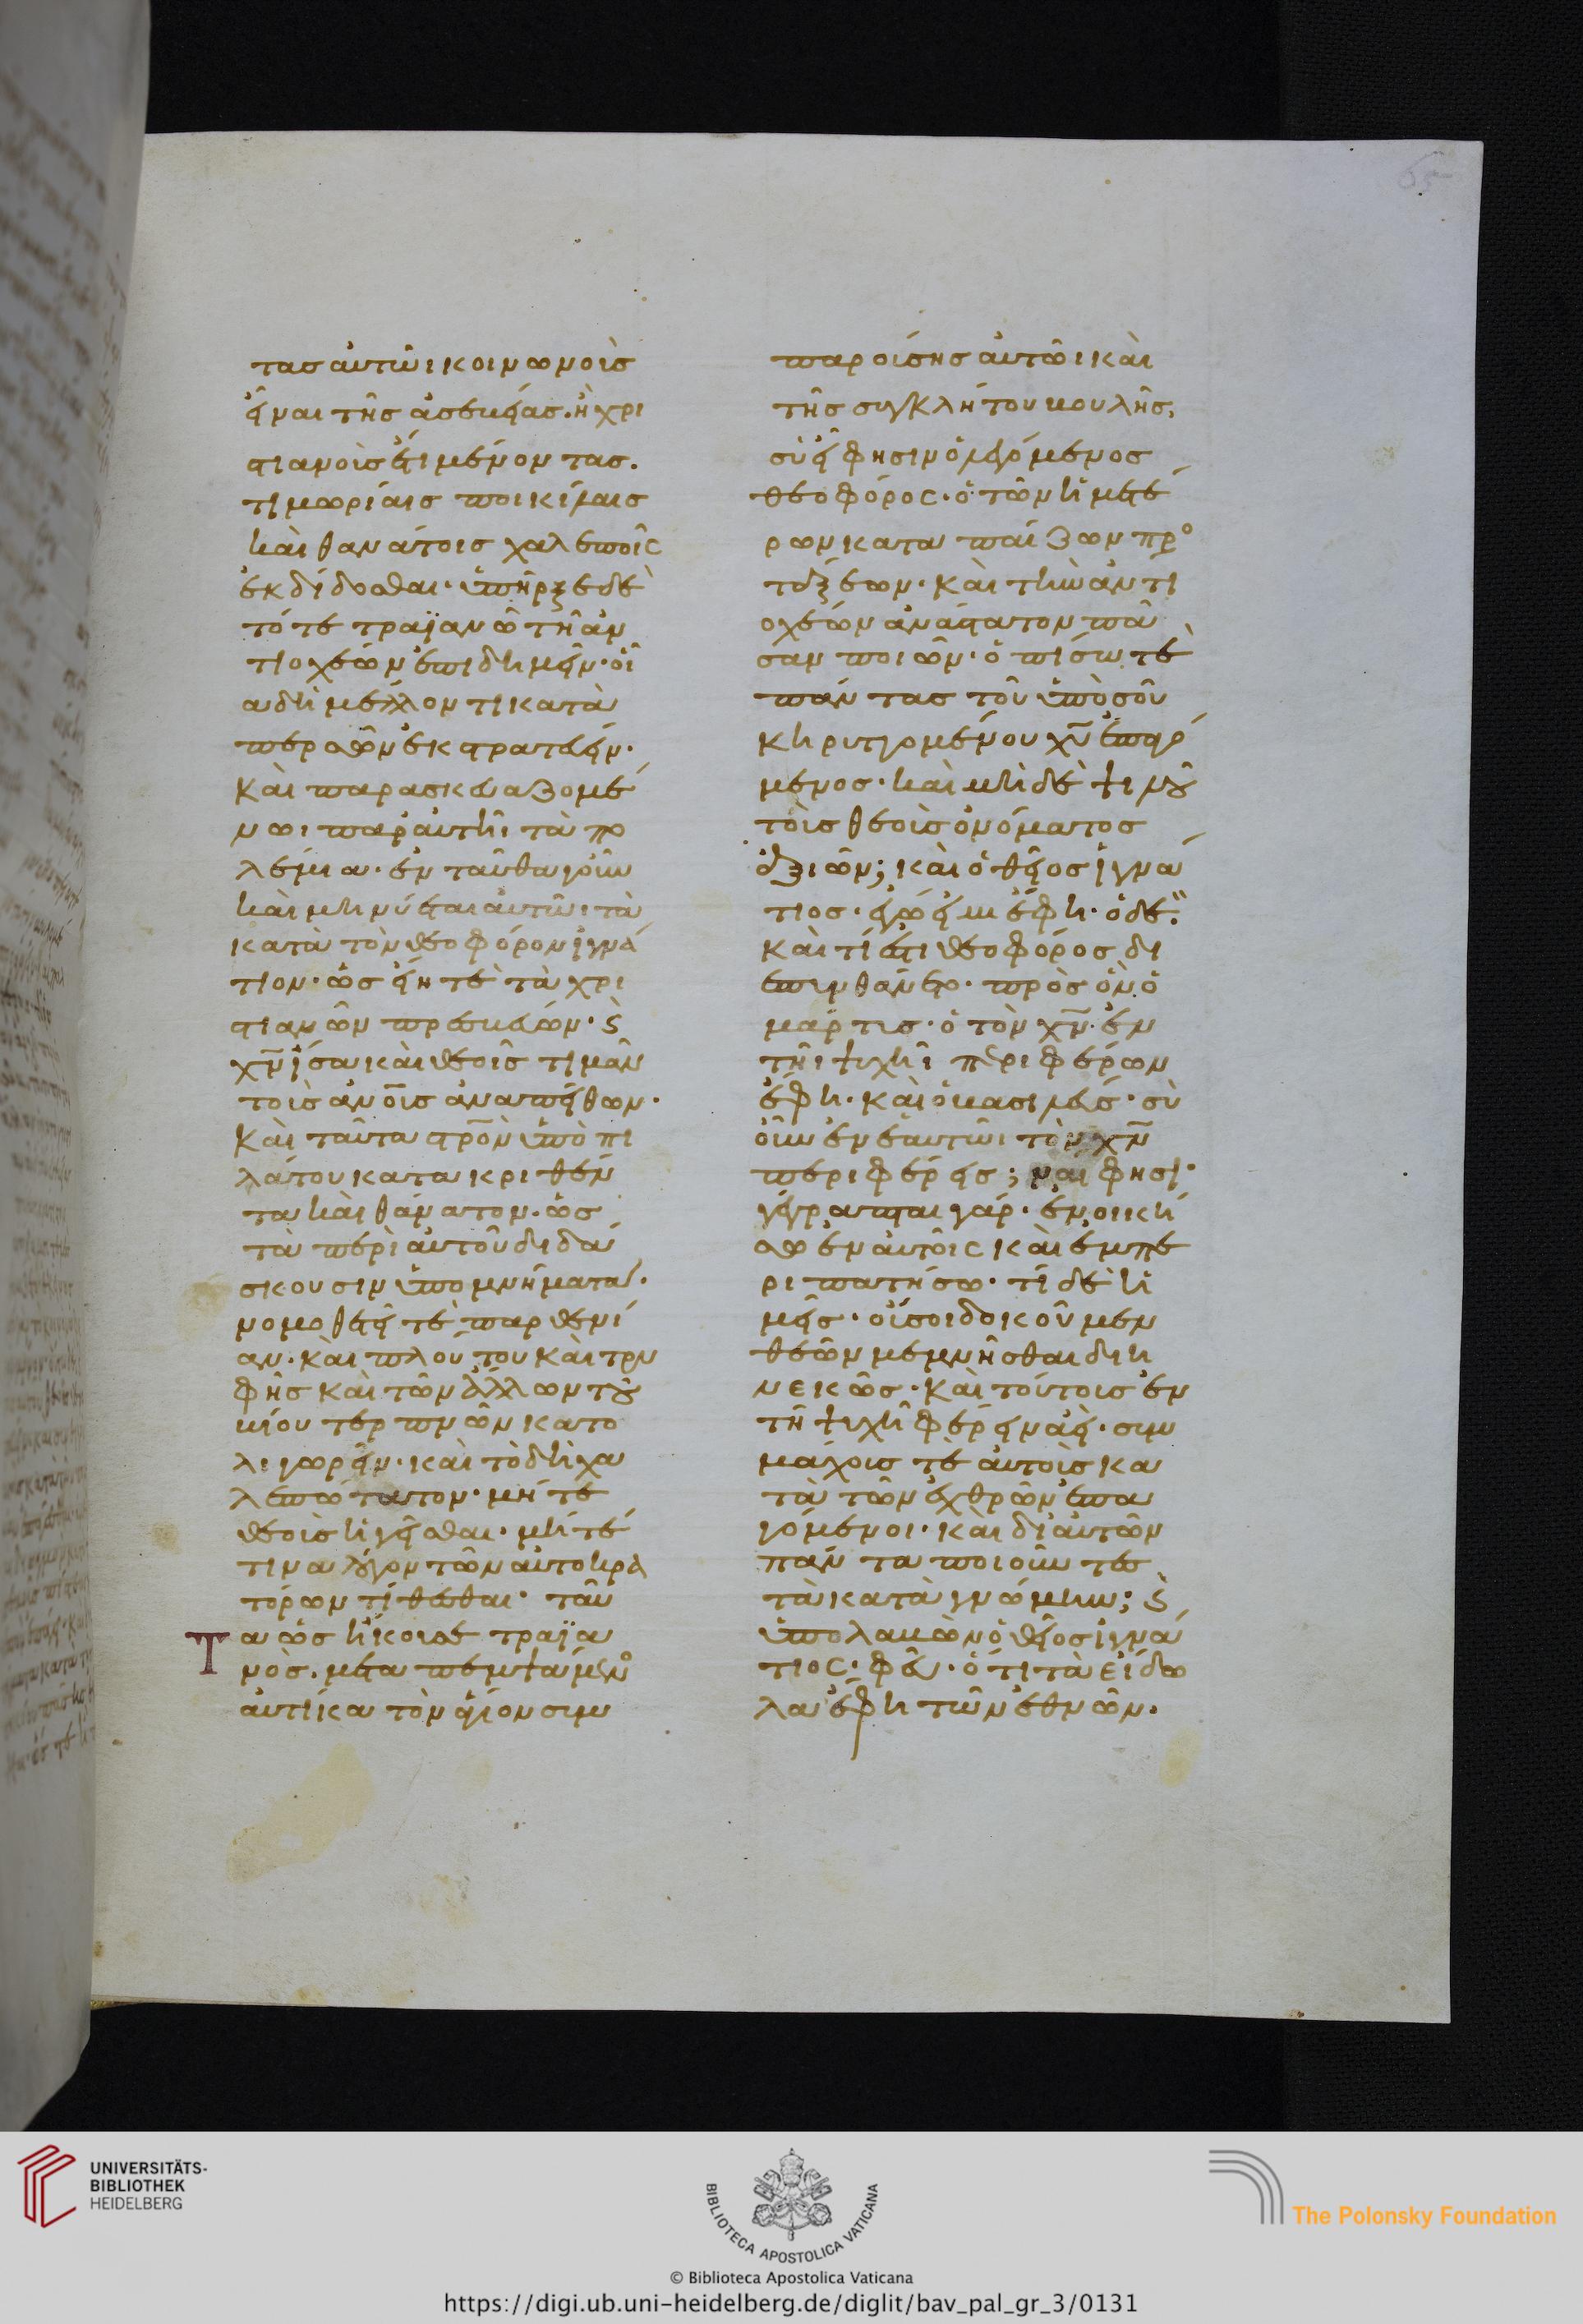 65
τας αὐτῶι κοινωνοὺς
εἶναι τῆς ἀσεβείας. ἢ χρι
στιανοὺς ἔτι μένοντας.
τιμωρίαις ποικίλαις
καὶ θανάτοις χαλεποῖς
ἐκδίδοσθαι· ὑπῆρξε δὲ
τότε τραϊανῶ τῆ ἀν
τιοχέων ἐπιδημεῖν· οἷ
α δὴ μέλλοντι κατὰ
περσῶν ἐκστρατεύειν·
καὶ παρασκευαζομέ
νωι παρ' αὐτῆι τὰ πο
λέμια· ἐνταῦθα γοῦν
καὶ μηνύεται αὐτῶι τὰ
κατὰ τὸν θεοφόρον ἰγνά
τιον· ὡς εἴη τε τὰ χρι
στιανῶν πρεσβεύων· ϛ
χν̅ ἴσα καὶ θεοῖς τιμᾶν
τοὺς ἀνο̅υς ἀναπείθων·
καὶ ταῦτα στρο̅ν ὑπὸ πι
λάτου κατακριθέν
τα καὶ θάνατον· ὡς
τὰ περὶ αὐτοῦ διδά
σκουσιν ὑπομνήματα·
νομοθετεῖ τε παρθενί
αν· καὶ πλούτου καὶ τρυ
φῆς καὶ τῶν ἄλλων τοῦ
βίου τερπνῶν κατο
λιγωρεῖν· καὶ τὸ δὴ χα
λεπώτατον· μήτε
θεοὺς ἡγεῖσθαι· μήτέ
τινα λόγον τῶν αὐτοκρα
τόρων τίθεσθαι· ταῦ
τα ὡς ἤκουσε τραϊα
νὸς· μεταπεμψάμενο
αὐτίκα τὸν ἅγιον συμ
παρούσης αὐτῶι καὶ
τῆς συγκλήτου βουλῆς·
σὺ εἶ φησιν ὁ λεγόμενος
θεοφόρος· ὁ τῶν ἡμετέ
ρων καταπαίζων προ
τάξεων· καὶ τὴν ἀντι
οχέων ἀνάστατον πᾶ
σαν ποιῶν· ὀπίσω τὲ
πάντας τοῦ ὑπὸ σοῦ
κηρυττομένου χυ̅ ἐπαγό
μενος· καὶ μηδὲ ψιλοῦ
τοὺς θεοὺς ὀνόματος
ἀξιῶν; καὶ ὁ θεῖος ἰγνά
τιος· ἐγώ εἰμι ἔφη· ὁ δέ·
καὶ τί ἐστι θεοφόρος δι
επυνθάνετο· πρὸς ὃν ὁ
μάρτυς· ὁ τὸν χν̅· ἐν
τῆι ψυχῆι περιφέρων
ἔφη· καὶ ὁ βασιλεύς· σὺ
οὖν ἐν ἑαυτῶι τὸν χν̅
περιφέρεις; ναί φησι·
γέγραπται γάρ· ἐνοική
σω ἐν αὐτοῖς καὶ ἐμπε
ριπατήσω· τί δὲ ἡ
μεῖς· οὔ σοι δοκοῦμεν
θεῶν μεμνῆσθαι διη
νεκῶς· καὶ τούτους ἐν
τῆ ψυχῆ φέρειν ἀεὶ· συμ
μάχους τὲ αὐτοὺς κα
τὰ τῶν ἐχθρῶν ἐπα
γόμενοι· καὶ δι' αὐτῶν
πάντα ποιοῦντες
τὰ κατὰ γνώμην; ϛ
ὑπολαβὼν ὁ θεῖος ἰγνά
τιος· φεῦ· ὅτι τὰ εἴδω
λα ἔφη τῶν ἐθνῶν·
UNIVERSITÄTS-
BIBLIOTHEK
HEIDELBERG
BIBLIOTECA APOSTOLICA VATICANA
The Polonsky Foundation
© Biblioteca Apostolica Vaticana
https://digi.ub.uni-heidelberg.de/diglit/bav_pal_gr_3/0131